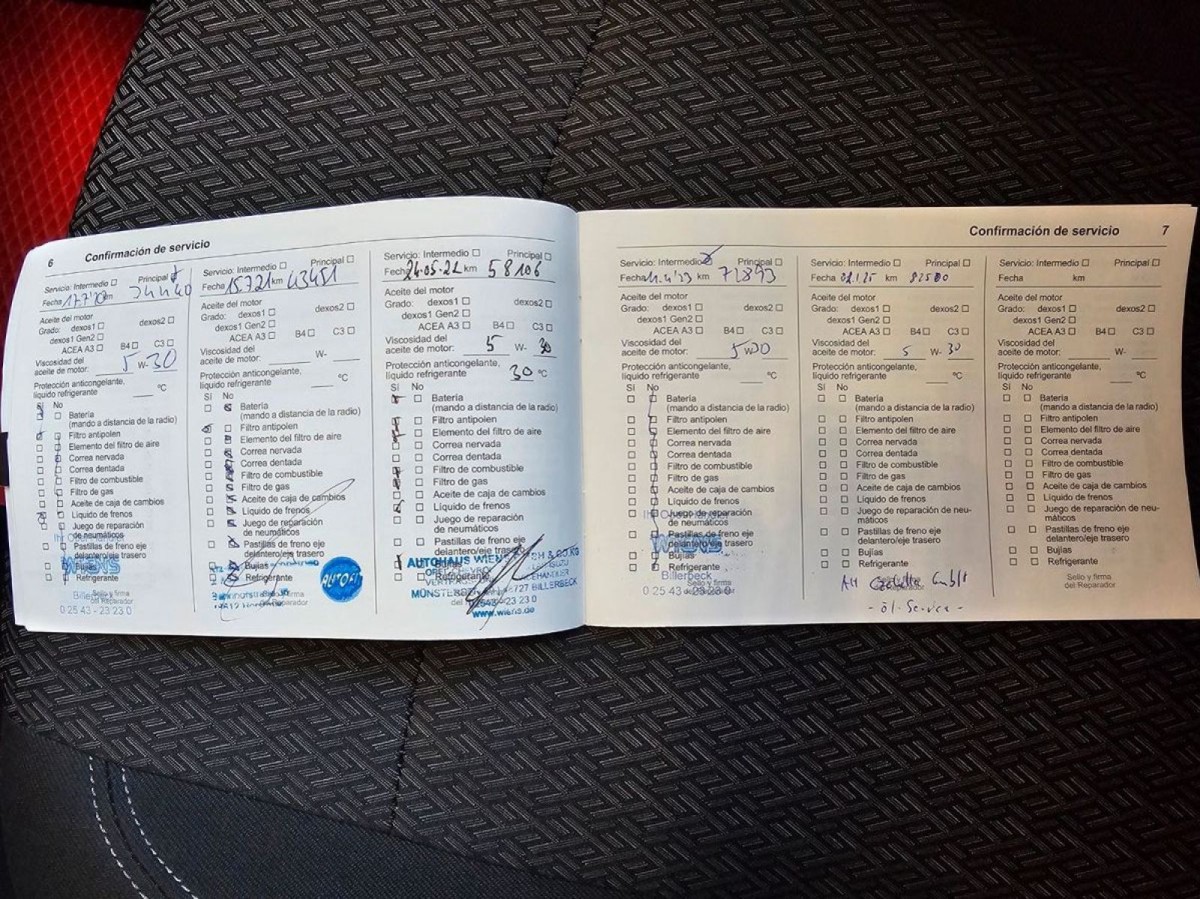 6 Confirmación de servicio
Servicio: Intermedio ☐ Principal ☐
Fecha 17.7.20 km 24440
Aceite del motor
Grado: dexos1 ☐ dexos2 ☐
dexos1 Gen2 ☐
ACEA A3 ☐ B4 ☐ C3 ☐
Viscosidad del
aceite de motor: 5 W- 30
Protección anticongelante,
líquido refrigerante °C
Sí No
Batería
Filtro antipolen
Elemento del filtro de aire
Correa nervada
Correa dentada
Filtro de combustible
Filtro de gas
Aceite de caja de cambios
Líquido de frenos
Juego de reparación
de neumáticos
Pastillas de freno eje
delantero/eje trasero
Bujías
WIENS
Billerbeck
Sello y firma
del Reparador
0 25 43 - 23 23 0
Servicio: Intermedio ☐ Principal ☐
Fecha 15.7.21 km 43451
Aceite del motor
Grado: dexos1 ☐ dexos2 ☐
dexos1 Gen2 ☐
ACEA A3 ☐ B4 ☐ C3 ☐
Viscosidad del
aceite de motor: W-
Protección anticongelante,
líquido refrigerante °C
Sí No
Batería
(mando a distancia de la radio)
Filtro antipolen
Elemento del filtro de aire
Correa nervada
Correa dentada
Filtro de combustible
Filtro de gas
Aceite de caja de cambios
Líquido de frenos
Juego de reparación
de neumáticos
Pastillas de freno eje
delantero/eje trasero
Bujías
Refrigerante
AUTOFIT
Sello y firma
del Reparador
Servicio: Intermedio ☐ Principal ☐
Fecha 24.05.22 km 58106
Aceite del motor
Grado: dexos1 ☐ dexos2 ☐
dexos1 Gen2 ☐
ACEA A3 ☐ B4 ☐ C3 ☐
Viscosidad del
aceite de motor: 5 W- 30
Protección anticongelante,
líquido refrigerante 30 °C
Sí No
Batería
(mando a distancia de la radio)
Filtro antipolen
Elemento del filtro de aire
Correa nervada
Correa dentada
Filtro de combustible
Filtro de gas
Aceite de caja de cambios
Líquido de frenos
Juego de reparación
de neumáticos
Pastillas de freno eje
delantero/eje trasero
Bujías
Refrigerante
AUTOHAUS WIENS
BILLERBECK
www.wiens.de
Confirmación de servicio 7
Servicio: Intermedio ☐ Principal ☐
Fecha 11.4.23 km 71893
Aceite del motor
Grado: dexos1 ☐ dexos2 ☐
dexos1 Gen2 ☐
ACEA A3 ☐ B4 ☐ C3 ☐
Viscosidad del
aceite de motor: 5W30
Protección anticongelante,
líquido refrigerante °C
Sí No
Batería
(mando a distancia de la radio)
Filtro antipolen
Elemento del filtro de aire
Correa nervada
Correa dentada
Filtro de combustible
Filtro de gas
Aceite de caja de cambios
Líquido de frenos
Juego de reparación
de neumáticos
Pastillas de freno eje
delantero/eje trasero
Bujías
Refrigerante
WIENS
Billerbeck
Sello y firma
del Reparador
0 25 43 - 23 23 0
Servicio: Intermedio ☐ Principal ☐
Fecha 02.1.25 km 82500
Aceite del motor
Grado: dexos1 ☐ dexos2 ☐
dexos1 Gen2 ☐
ACEA A3 ☐ B4 ☐ C3 ☐
Viscosidad del
aceite de motor: 5 W- 30
Protección anticongelante,
líquido refrigerante °C
Sí No
Batería
(mando a distancia de la radio)
Filtro antipolen
Elemento del filtro de aire
Correa nervada
Correa dentada
Filtro de combustible
Filtro de gas
Aceite de caja de cambios
Líquido de frenos
Juego de reparación de neu-
máticos
Pastillas de freno eje
delantero/eje trasero
Bujías
Refrigerante
Sello y firma
del Reparador
AH GmbH
- öl-Service -
Servicio: Intermedio ☐ Principal ☐
Fecha km
Aceite del motor
Grado: dexos1 ☐ dexos2 ☐
dexos1 Gen2 ☐
ACEA A3 ☐ B4 ☐ C3 ☐
Viscosidad del
aceite de motor: W-
Protección anticongelante,
líquido refrigerante °C
Sí No
Batería
(mando a distancia de la radio)
Filtro antipolen
Elemento del filtro de aire
Correa nervada
Correa dentada
Filtro de combustible
Filtro de gas
Aceite de caja de cambios
Líquido de frenos
Juego de reparación de neu-
máticos
Pastillas de freno eje
delantero/eje trasero
Bujías
Refrigerante
Sello y firma
del Reparador